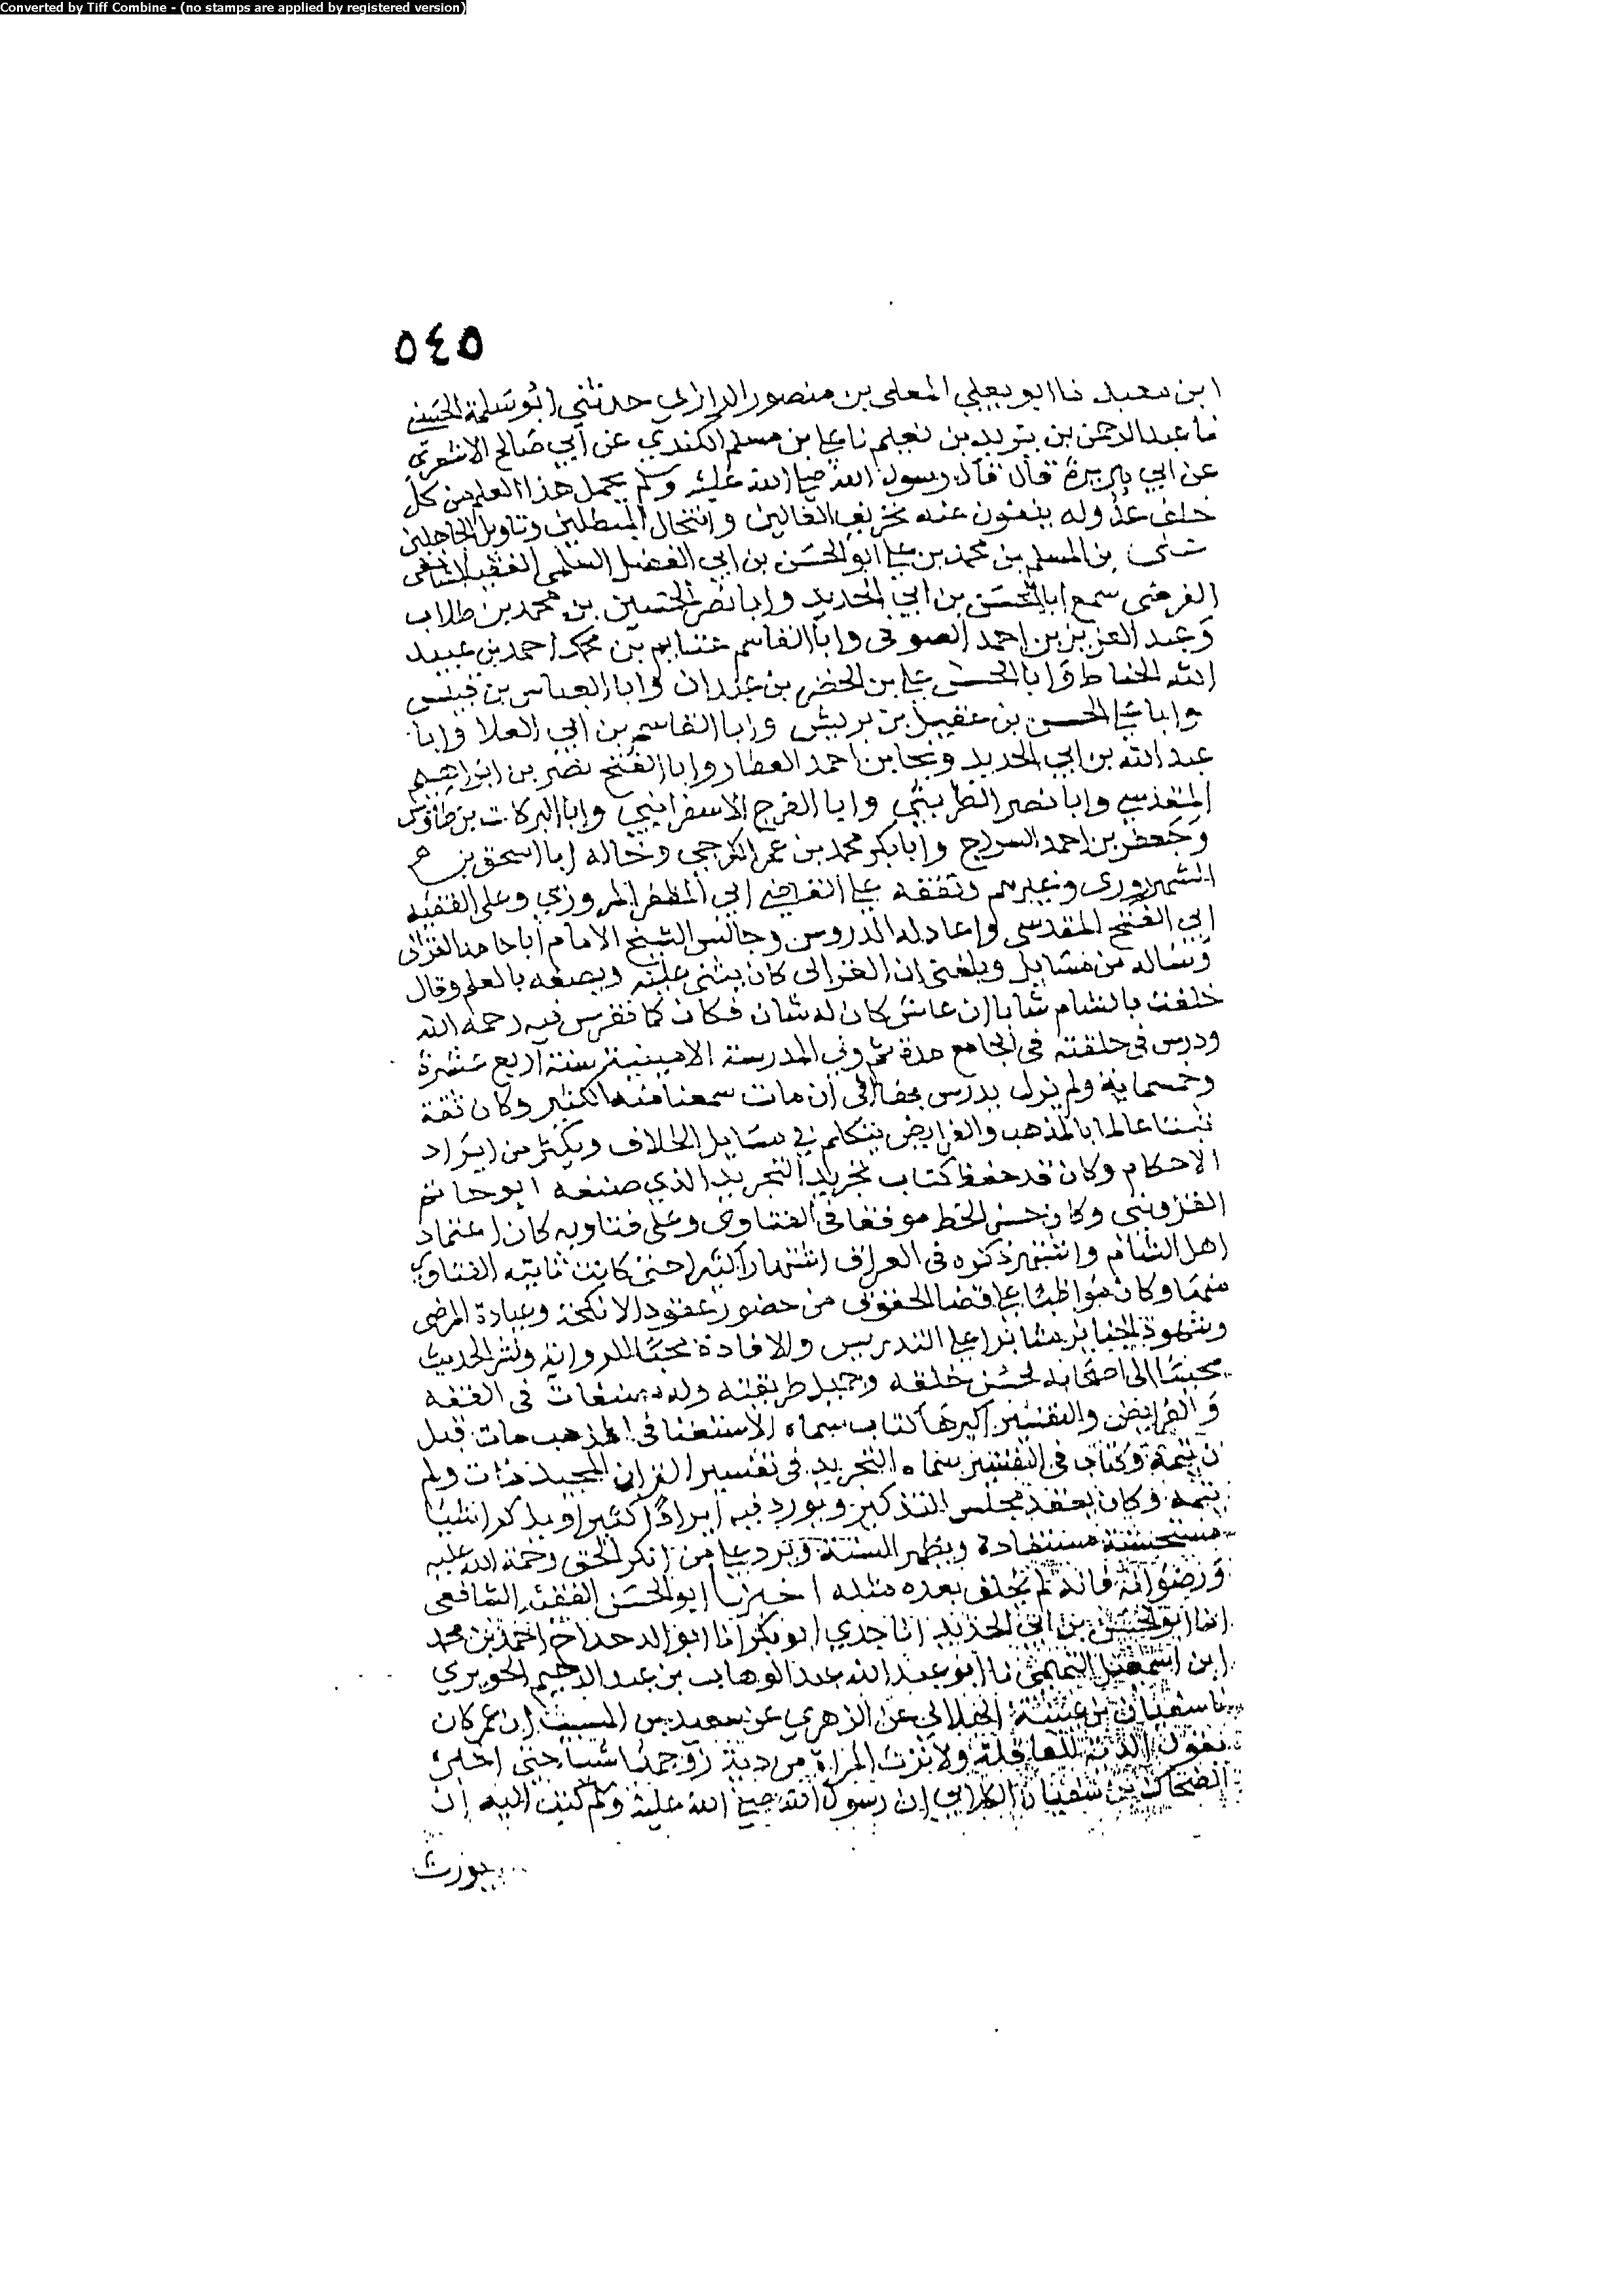 Converted by Tiff Combine - (no stamps are applied by registered version)
٥٤٥
ابن سعيد نا ابو يعلي المعلى بن منصور الرازي حدثني ابو سلمة
نا عبد الرحمن بن يزيد بن نا علي بن مسلم الكندي عن ابي صالح الاشعري
عن ابي هريرة قال قال رسول الله صلى الله عليه وسلم يحمل هذا العلم من كل
خلف عدوله ينفون عنه تحريف الغالين وانتحال المبطلين وتاويل الجاهلين
بن المسلم بن محمد بن علي ابو الحسن بن ابي الفضل السلمي الفقيه الشافعي
الفرضي سمع ابا الحسن بن ابي الحديد وابا نصر الحسين بن محمد بن طلاب
وعبد العزيز بن احمد الصوفي وابا القاسم غنايم بن احمد بن عبيد
الله الخياط وابا الحسن علي بن الخضر بن عبدان وابا العباس بن قبيس
وابا علي الحسن بن عقيل بن بريش وابا القاسم بن ابي العلا وابا
عبد الله بن ابي الحديد ونجا بن احمد العطار وابا الفتح نصر بن ابراهيم
المقدسي وابا نصر الطريثيثي وابا الفرج الاسفرايني وابا البركات بن طاوس
وجعفر بن احمد السراج وابا بكر محمد بن عمر الكرجي وخاله ابا اسحق بن
الشهرزوري وغيرهم وتفقه علي القاضي ابي المظفر المروزي وعلى الفقيه
ابي الفتح المقدسي واعاد له الدروس وجالس الشيخ الامام ابا حامد الغزالي
وساله عن مسايل وبلغني ان الغزالى كان يثني عليه ويصفه بالعلم وقال
خلفت بالشام شابا ان عاش كان له شان فكان كما تفرس فيه رحمه الله
ودرس في حلقته في الجامع مدة ثم ولي المدرسة الامينية سنة اربع عشرة
وخمسماية ولم يزل يدرس بها الى ان مات سمعنا منه الكثير وكان ثقة
ثبتا عالما بالمذهب والفرايض يتكلم في مسايل الخلاف ويكثر من ايراد
الاحكام وكان قد حفظ كتاب تجريد التجريد الذي صنفه ابو حاتم
القزويني وكان حسن الخط موفقا في الفتاوى وعلى فتاويه كان اعتماد
اهل الشام وانتشر ذكره في العراق اشتهارا كثيرا حتى كانت تاتيه الفتاوي
منها وكان مواظبا علي قضا الحقوق من حضور عقود الانكحة وعيادة المرضى
وشهود الجنايز مثابرا علي التدريس والافادة محبا للرواية ونشر الحديث
محببا الى اصحابه لحسن خلقه وجميل طريقته وله مصنفات في الفقه
والفرايض والتفسير اكبرها كتاب سماه الاستغنا في المذهب مات قبل
ان يتمه وكتاب في التفسير سماه التجريد في تفسير القران المجيد مات ولم
يتمه وكان يعقد مجلس التذكير ويورد فيه ايرادا كثيرا ويذكر اشيا
مستحسنة مستفادة ويظهر السنة ويرد علي من انكر الحق رحمة الله عليه
ورضوانه فانه لم يخلف بعده مثله اخبرنا ابو الحسن الفقيه الشافعي
انا ابو الحسن بن ابي الحديد انا جدي ابو بكر انا ابو الدحداح احمد بن محمد
ابن اسمعيل التميمي نا ابو عبد الله عبد الوهاب بن عبد الرحيم الجوبري
نا سفيان بن عيينة الهلالي عن الزهري عن سعيد بن المسيب ان عمر كان
يقول الدية للعاقلة ولا ترث المراة من دية زوجها شيا حتى اخبره
الضحاك بن سفيان الكلابي ان رسول الله صلى الله عليه وسلم كتب اليه ان
يورث